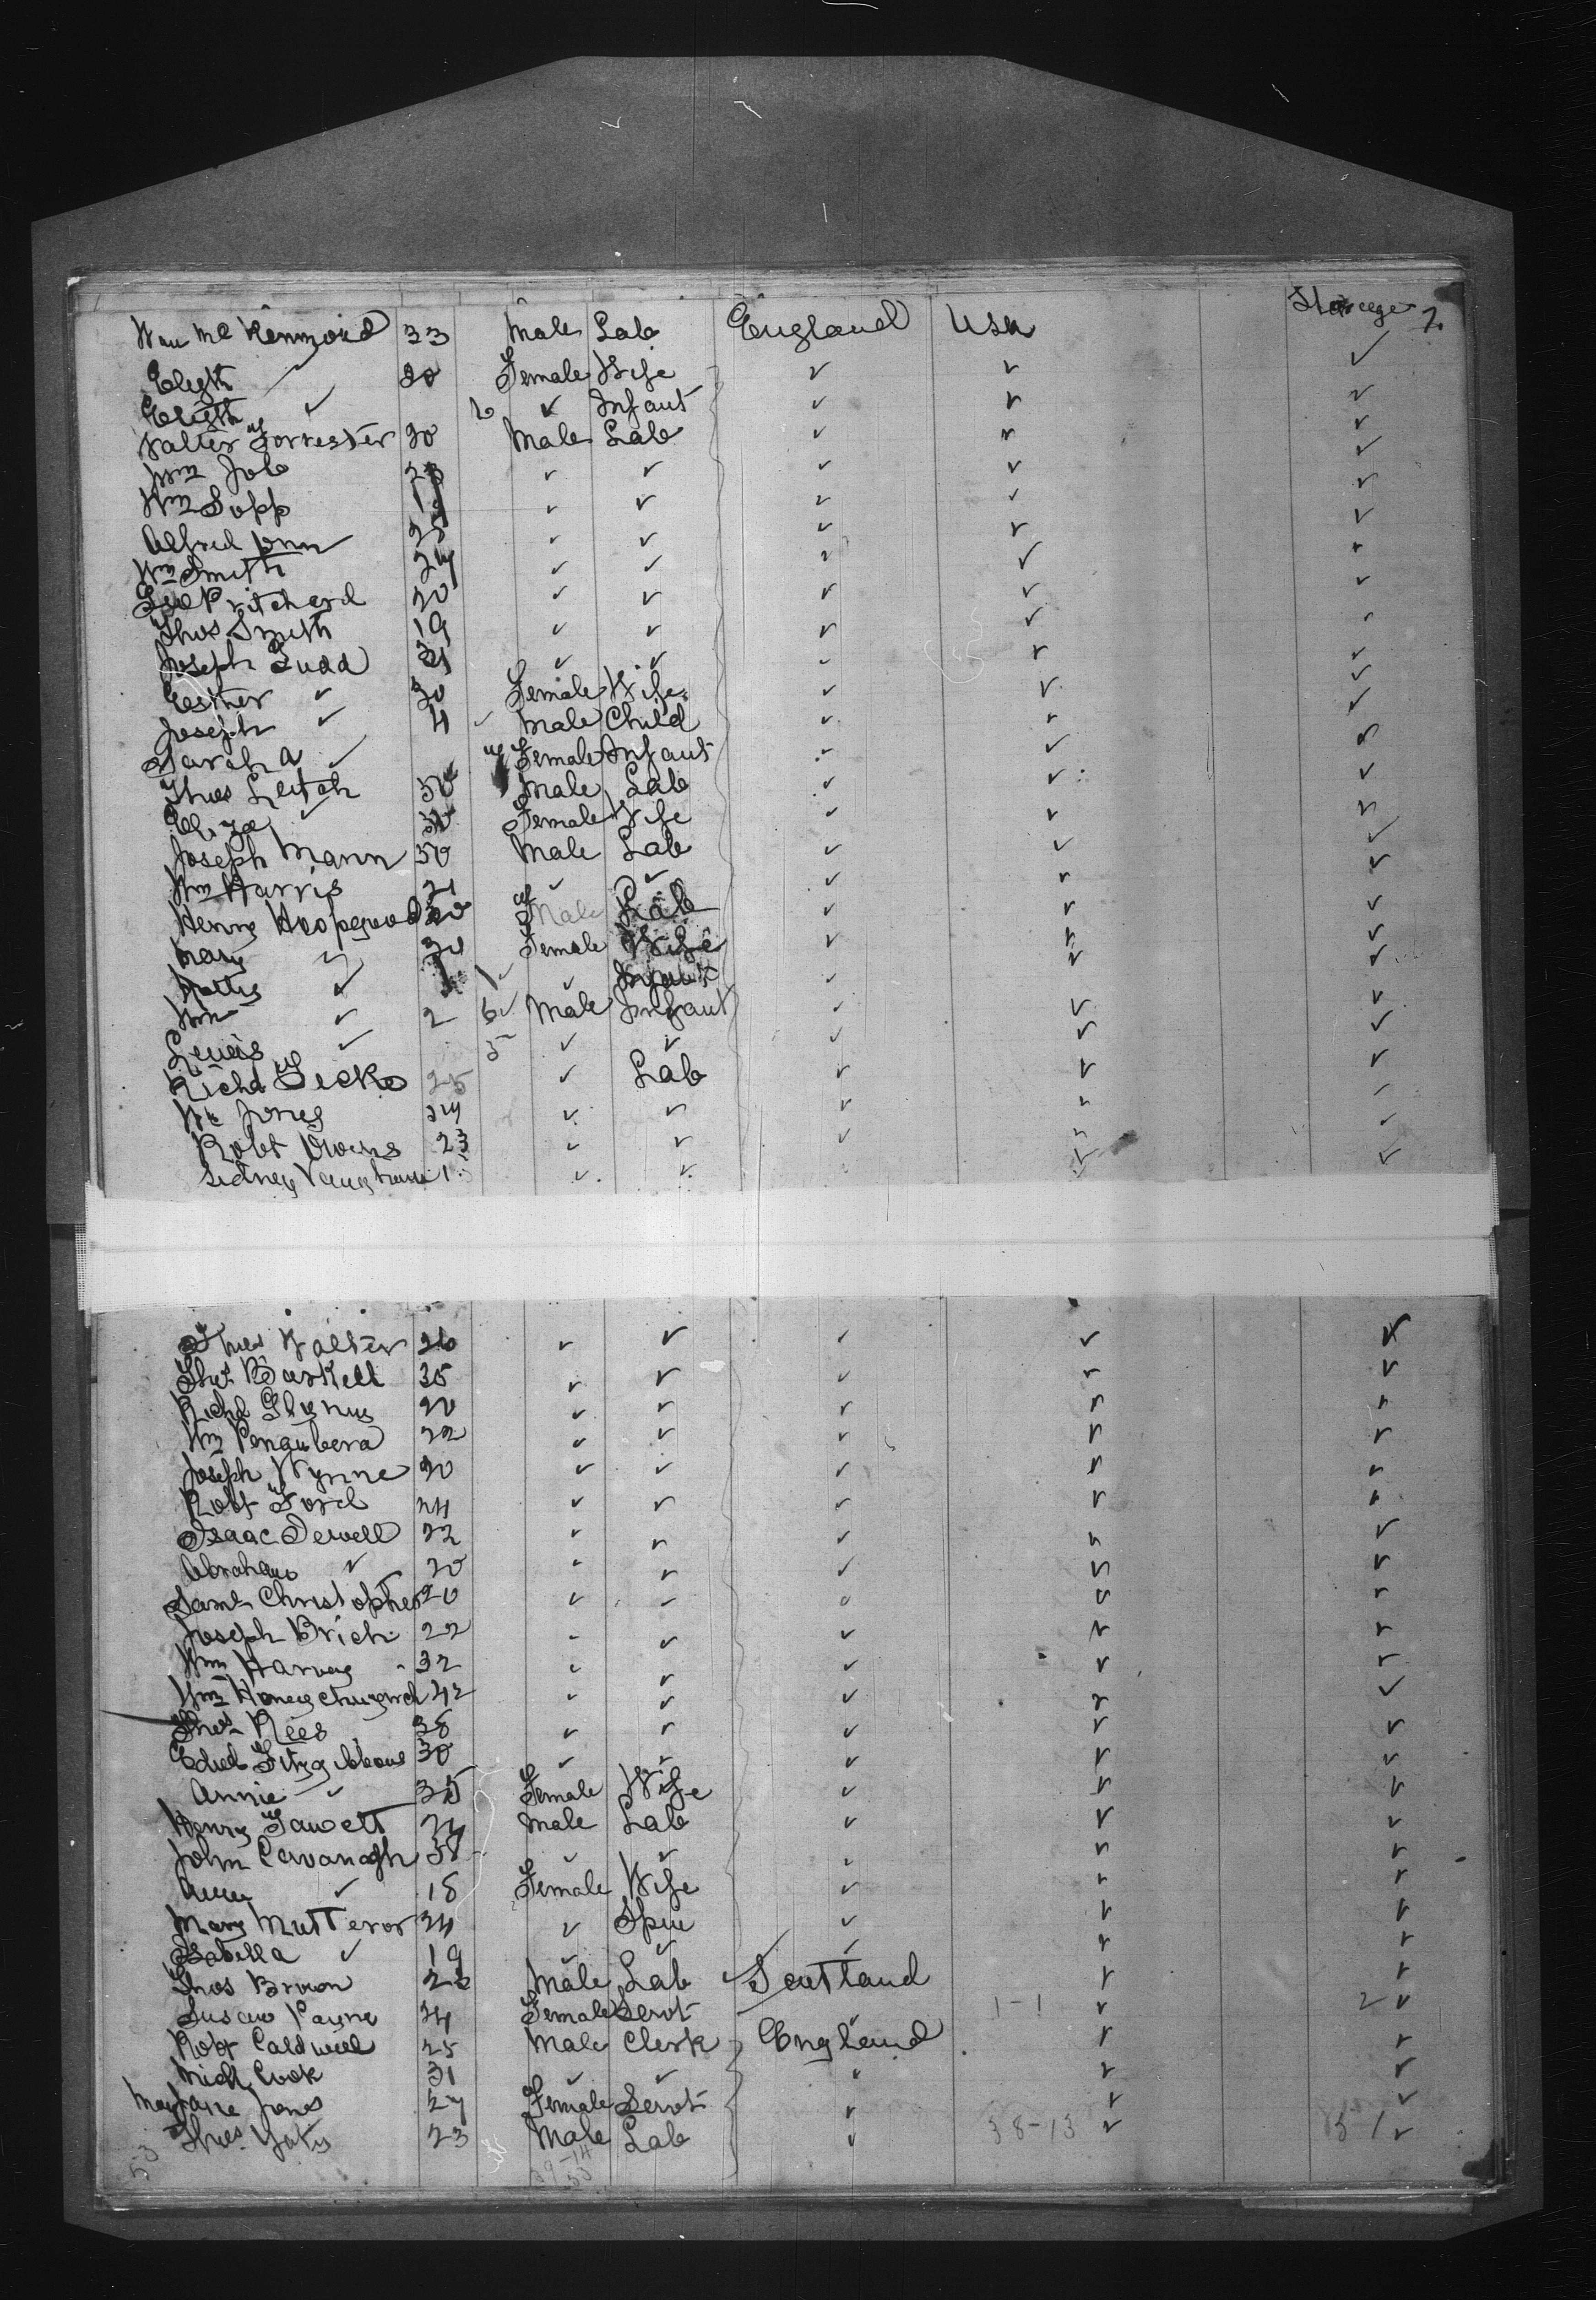 Steerage 7.
Wm Mc Kenmord 33 Male Lab England USA
Elizth 30 Female Wife ✓ ✓ ✓
Elizth ✓ 6 ✓ Infant ✓ ✓ ✓
Walter Forrester 20 Male Lab ✓ ✓ ✓
Wm Job ✓ ✓ ✓ ✓ ✓
Wm Sopp ✓ ✓ ✓ ✓ ✓
Alfred 25 ✓ ✓ ✓ ✓ ✓
Wm Smith 24 ✓ ✓ ✓ ✓ ✓
Geo Pritchard 20 ✓ ✓ ✓ ✓ ✓
Thos Smith 19 ✓ ✓ ✓ ✓ ✓
Joseph Judd 31 ✓ ✓ ✓ ✓ ✓
Esther ✓ 30 Female Wife ✓ ✓ ✓
Joseph ✓ 4 ✓ Male Child ✓ ✓ ✓
Sarah A ✓ Female Infant ✓ ✓ ✓
Thos Leitch 30 Male Lab ✓ ✓ ✓
Eliza ✓ 30 Female Wife ✓ ✓ ✓
Joseph Mann 50 Male Lab ✓ ✓ ✓
Wm Harris 21 ✓ ✓ ✓ ✓ ✓
Henry Hoopgood Male Lab ✓ ✓ ✓
Mary ✓ 30 Female Wife ✓ ✓ ✓
Hatty ✓ ✓ Infant ✓ ✓ ✓
Wm ✓ 2 6 ✓ Male Infant ✓ ✓ ✓
Lewis ✓ 5 ✓ ✓ ✓ ✓ ✓
Richd 25 ✓ Lab ✓ ✓ ✓
Wm Jones 24 ✓ ✓ ✓ ✓ ✓
Robt Owens 23 ✓ ✓ ✓ ✓ ✓
Sidney Vaughan ✓ ✓ ✓ ✓ ✓
Thos Walter 26 ✓ ✓ ✓ ✓ ✓
Thos Baskell 35 ✓ ✓ ✓ ✓ ✓
Richd 20 ✓ ✓ ✓ ✓ ✓
Wm Pengubera 22 ✓ ✓ ✓ ✓ ✓
Joseph Wynne 20 ✓ ✓ ✓ ✓ ✓
Robt Ford 24 ✓ ✓ ✓ ✓ ✓
Isaac Sewell 22 ✓ ✓ ✓ ✓ ✓
Abraham ✓ 20 ✓ ✓ ✓ ✓ ✓
Saml Christopher 20 ✓ ✓ ✓ ✓ ✓
Joseph Brich 22 ✓ ✓ ✓ ✓ ✓
Wm Harvey 32 ✓ ✓ ✓ ✓ ✓
Wm Honeychurch 42 ✓ ✓ ✓ ✓ ✓
Thos Rees 38 ✓ ✓ ✓ ✓ ✓
Edwd Fitzgibbons 30 ✓ ✓ ✓ ✓ ✓
Annie ✓ 35 Female Wife ✓ ✓ ✓
Henry Fawcett Male Lab ✓ ✓ ✓
John Cavanagh 38 ✓ ✓ ✓ ✓ ✓
✓ 18 Female Wife ✓ ✓ ✓
Mary Mutteror 24 ✓ Spin ✓ ✓ ✓
Isabella ✓ 19 ✓ ✓ ✓ ✓ ✓
Thos Brown Male Lab Scotland ✓ ✓
Susan Payne 24 Female Servt ✓ 1-1 ✓ 2 ✓
Robt Caldwell 25 Male Clerk England ✓ ✓
Mich Cook 31 ✓ ✓ ✓ ✓ ✓
Mary Jane Jones 27 Female Servt ✓ ✓ ✓
Thos Yates 23 Male Lab ✓ 38-13 ✓ 51 ✓
53 39-14
53